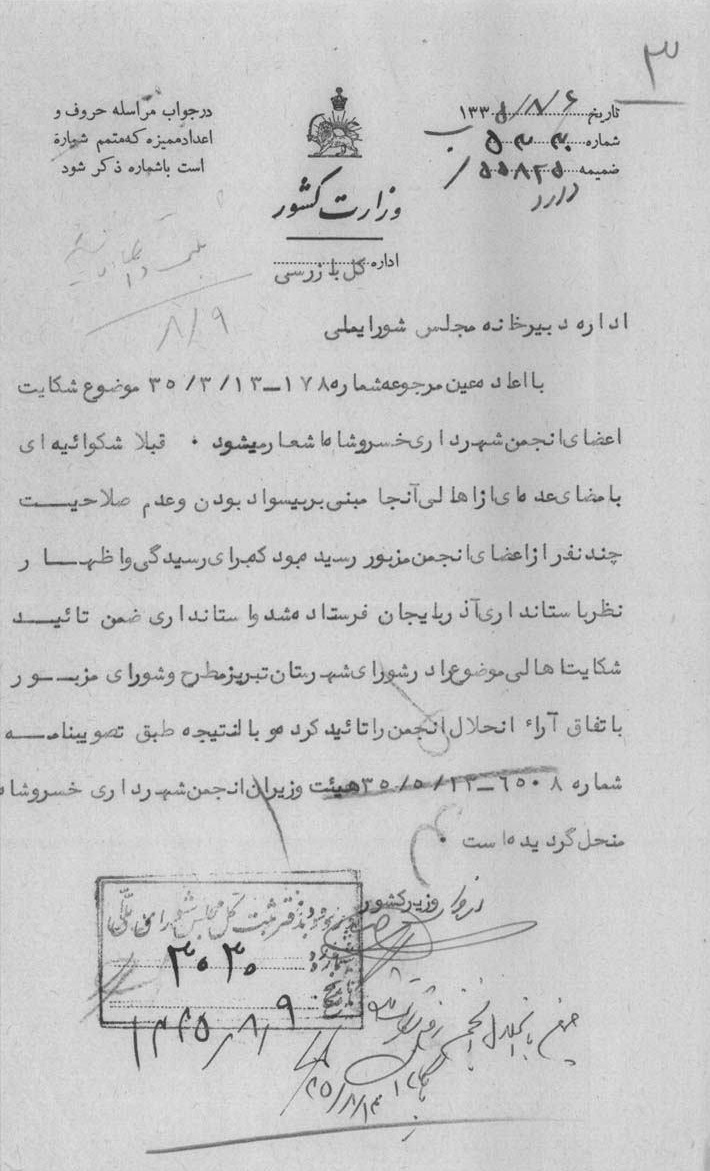 ۳
تاریخ ۶/۸/۱۳۳۵
شماره
ضمیمه
دارد
در جواب مراسله حروف و
اعداد ممیزه که متمم شمارهٔ
است باشماره ذکر شود
وزارت کشور
اداره کل بازرسی
۸/۹
اداره دبیرخانه مجلس شورایملی
بااعاده عین مرجوعه شماره ۱۷۸ــ۳۵/۳/۱۳ موضوع شکایت
اعضای انجمن شهرداری خسروشاه اشعار میشود ٠ قبلا شکوائیه ای
بامضای عده ای از اهالی آنجا مبنی بر بیسواد بودن وعدم صلاحیــت
چند نفر از اعضای انجمن مزبور رسیده بود که برای رسیدگی و اظهــار
نظر باستانداری آذربایجان فرستاده شد و استانداری ضمن تائیــد
شکایت اهالی موضوع را در شورای شهرستان تبریز مطرح و شورای مزبــور
باتفاق آراء انحلال انجمن را تائید کرده و بالنتیجه طبق تصویبنامــه
شماره ۶۵۰۸ــ۳۵/۵/۱۳ هیئت وزیران انجمن شهرداری خسروشاه
منحل گردیده است ٠
از طرف وزیر کشور
ورود بدفتر ثبت کل مجلس شورای ملی
شماره: ۳۰۳۰
تاریخ: ۹/۸/۱۳۳۵
۳۵/۸/۱۳